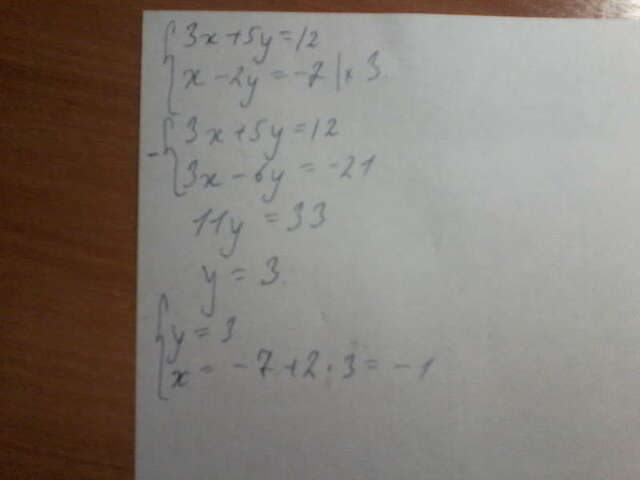 3x+5y=12
x-2y=-7 | x 3
3x+5y=12
3x-6y=-21
11y=33
y=3.
y=3
x=-7+2·3=-1